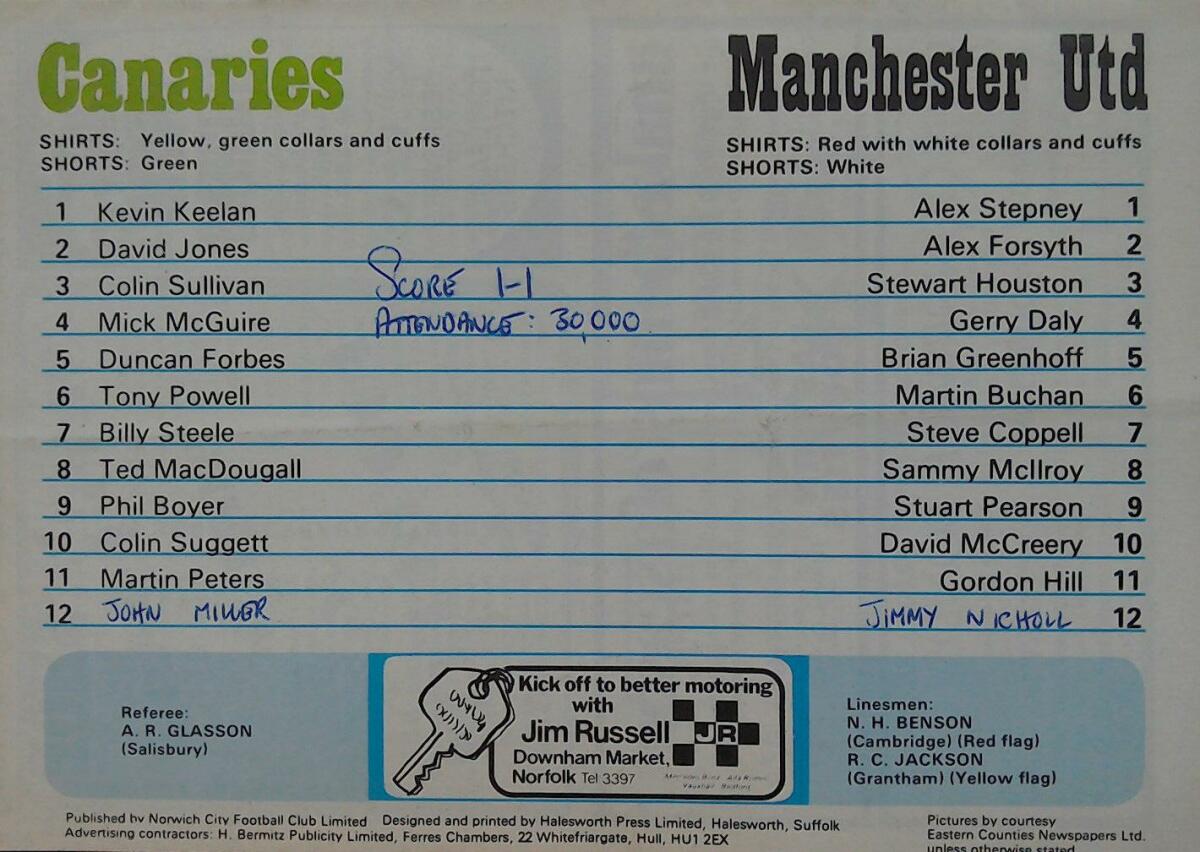 Canaries
Manchester Utd
SHIRTS: Yellow, green collars and cuffs
SHORTS: Green
SHIRTS: Red with white collars and cuffs
SHORTS: White
1 Kevin Keelan
Alex Stepney 1
2 David Jones
Alex Forsyth 2
3 Colin Sullivan
SCORE 1-1
Stewart Houston 3
4 Mick McGuire
ATTENDANCE: 30,000
Gerry Daly 4
5 Duncan Forbes
Brian Greenhoff 5
6 Tony Powell
Martin Buchan 6
7 Billy Steele
Steve Coppell 7
8 Ted MacDougall
Sammy McIlroy 8
9 Phil Boyer
Stuart Pearson 9
10 Colin Suggett
David McCreery 10
11 Martin Peters
Gordon Hill 11
12 JOHN MILLER
JIMMY NICHOLL 12
Referee:
A. R. GLASSON
(Salisbury)
Kick off to better motoring
with
Jim Russell
JR
Downham Market,
Norfolk Tel 3397
Linesmen:
N. H. BENSON
(Cambridge) (Red flag)
R. C. JACKSON
(Grantham) (Yellow flag)
Published by Norwich City Football Club Limited Designed and printed by Halesworth Press Limited, Halesworth, Suffolk
Advertising contractors: H. Bermitz Publicity Limited, Ferres Chambers, 22 Whitefriargate, Hull, HU1 2EX
Pictures by courtesy
Eastern Counties Newspapers Ltd.
unless otherwise stated